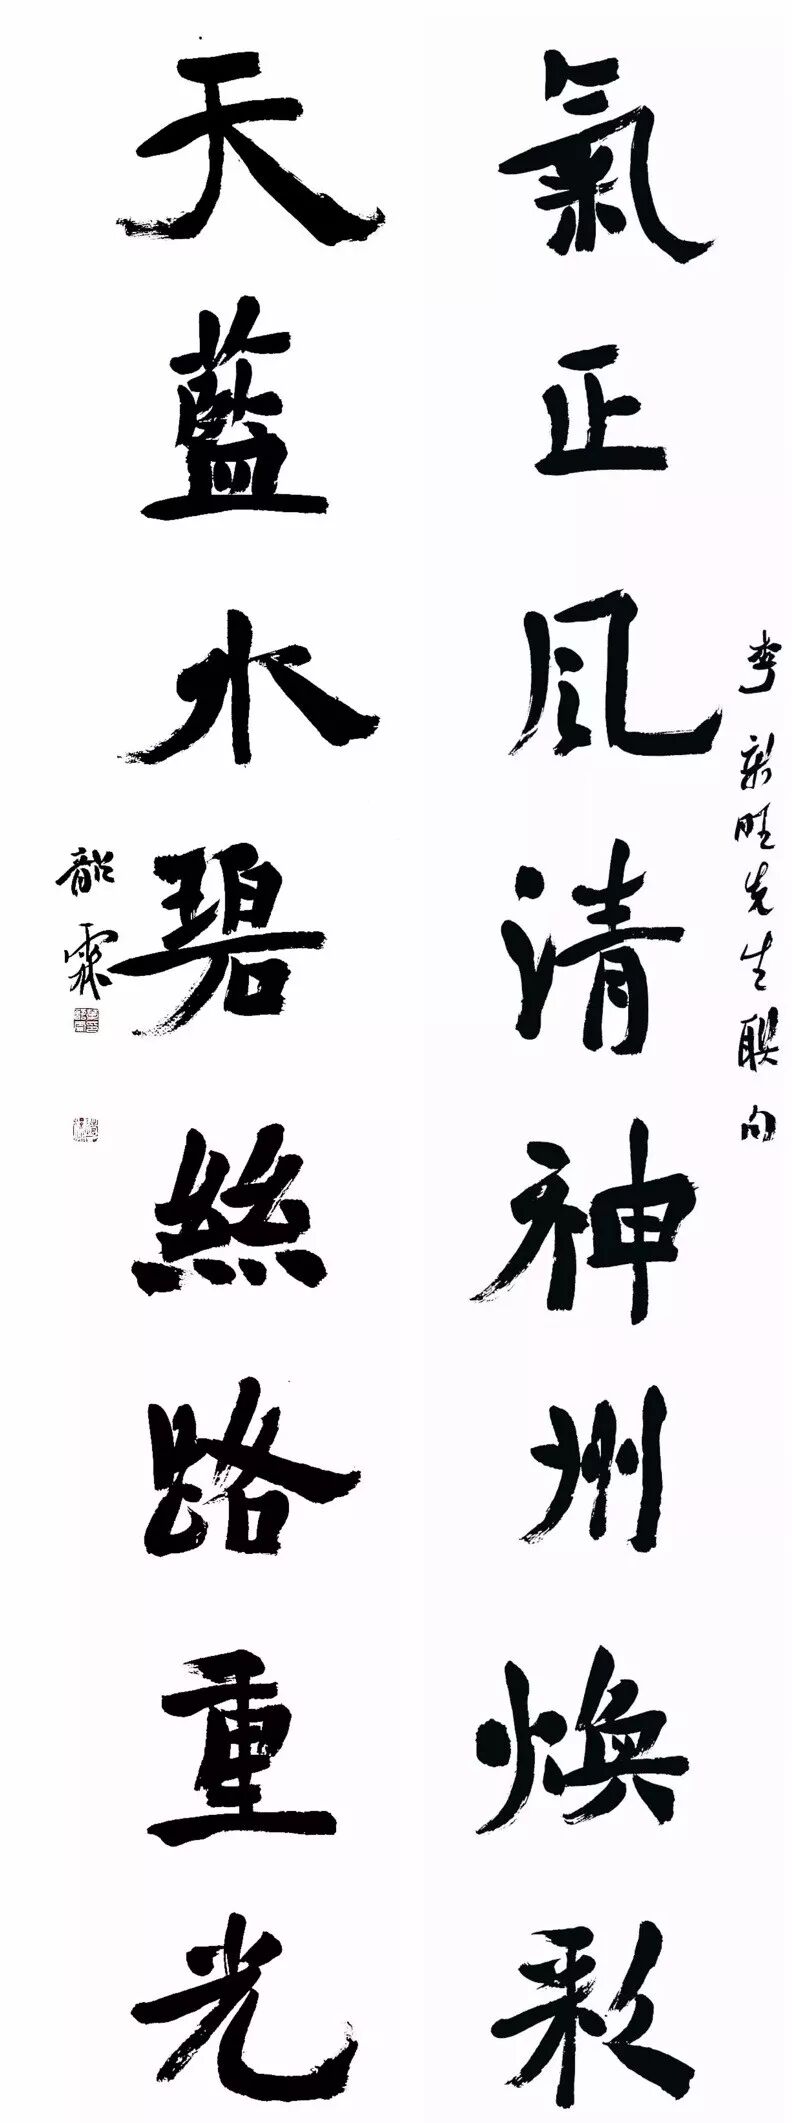 氣正風清神州煥彩
李新旺先生聯句
天藍水碧絲路重光
韶霖